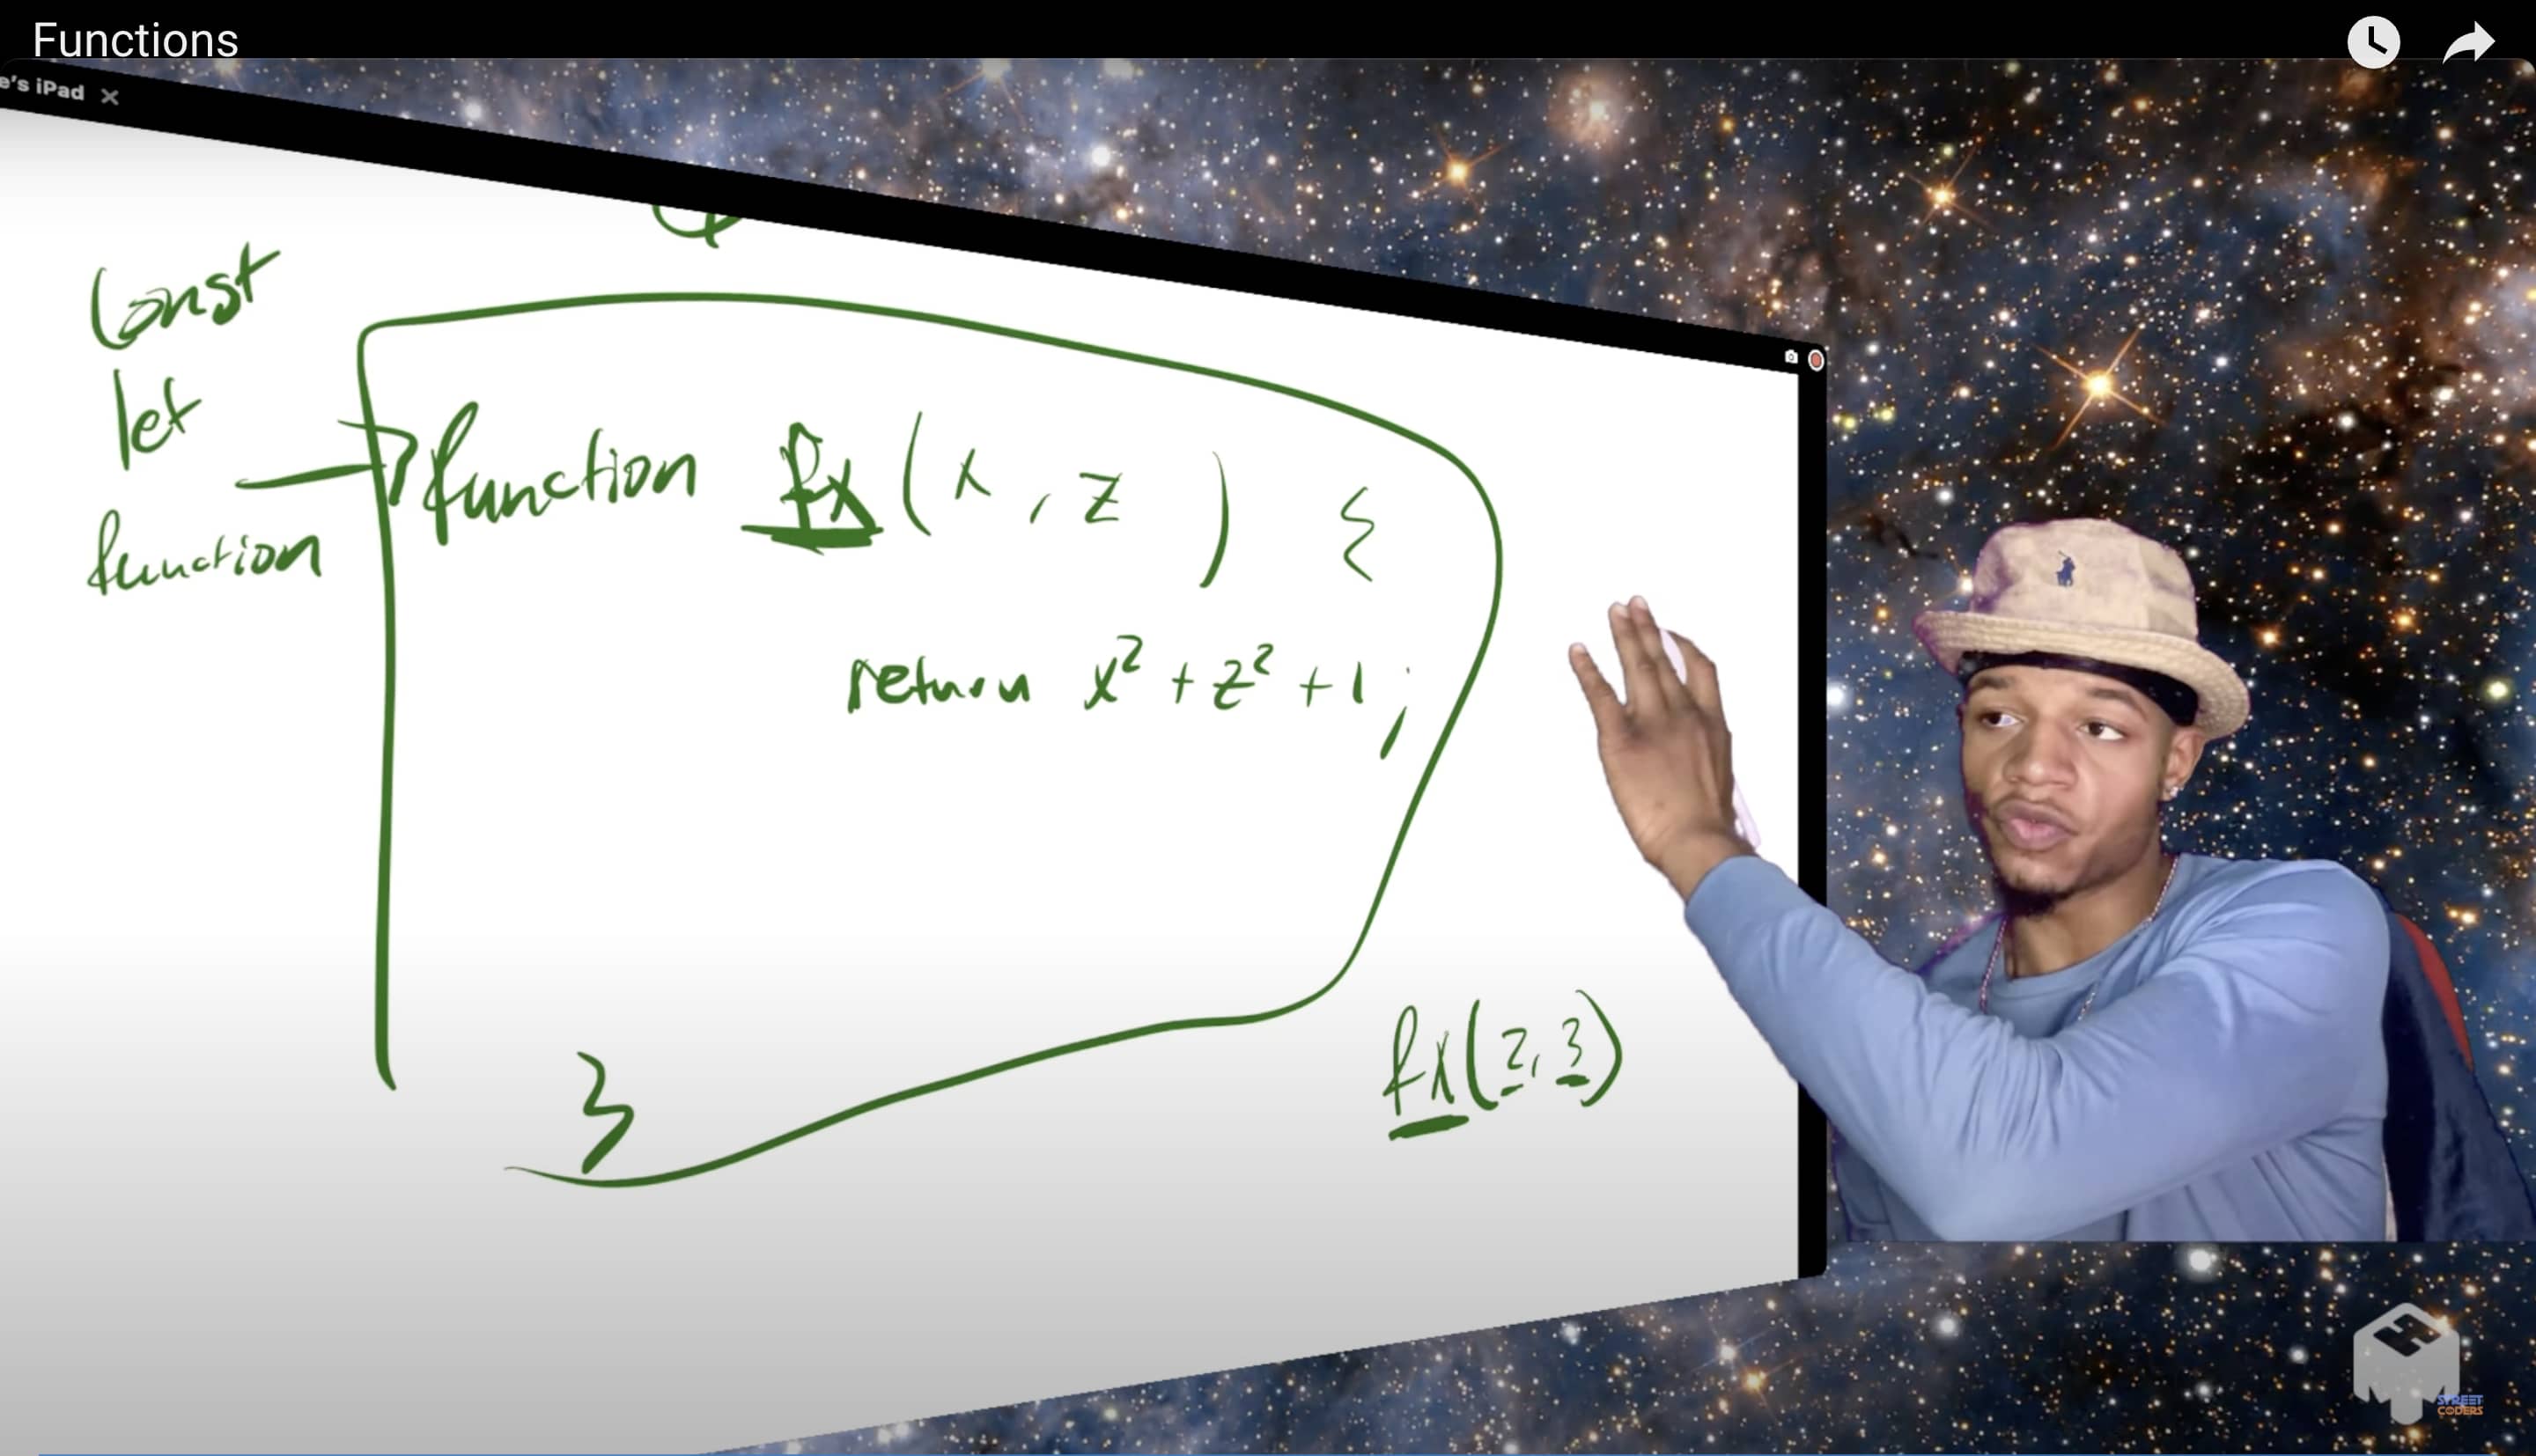 Functions
e's iPad
const
let
function
function fx(x, z) {
return x² + z² + 1;
}
fx(2, 3)
STREET
CODERS